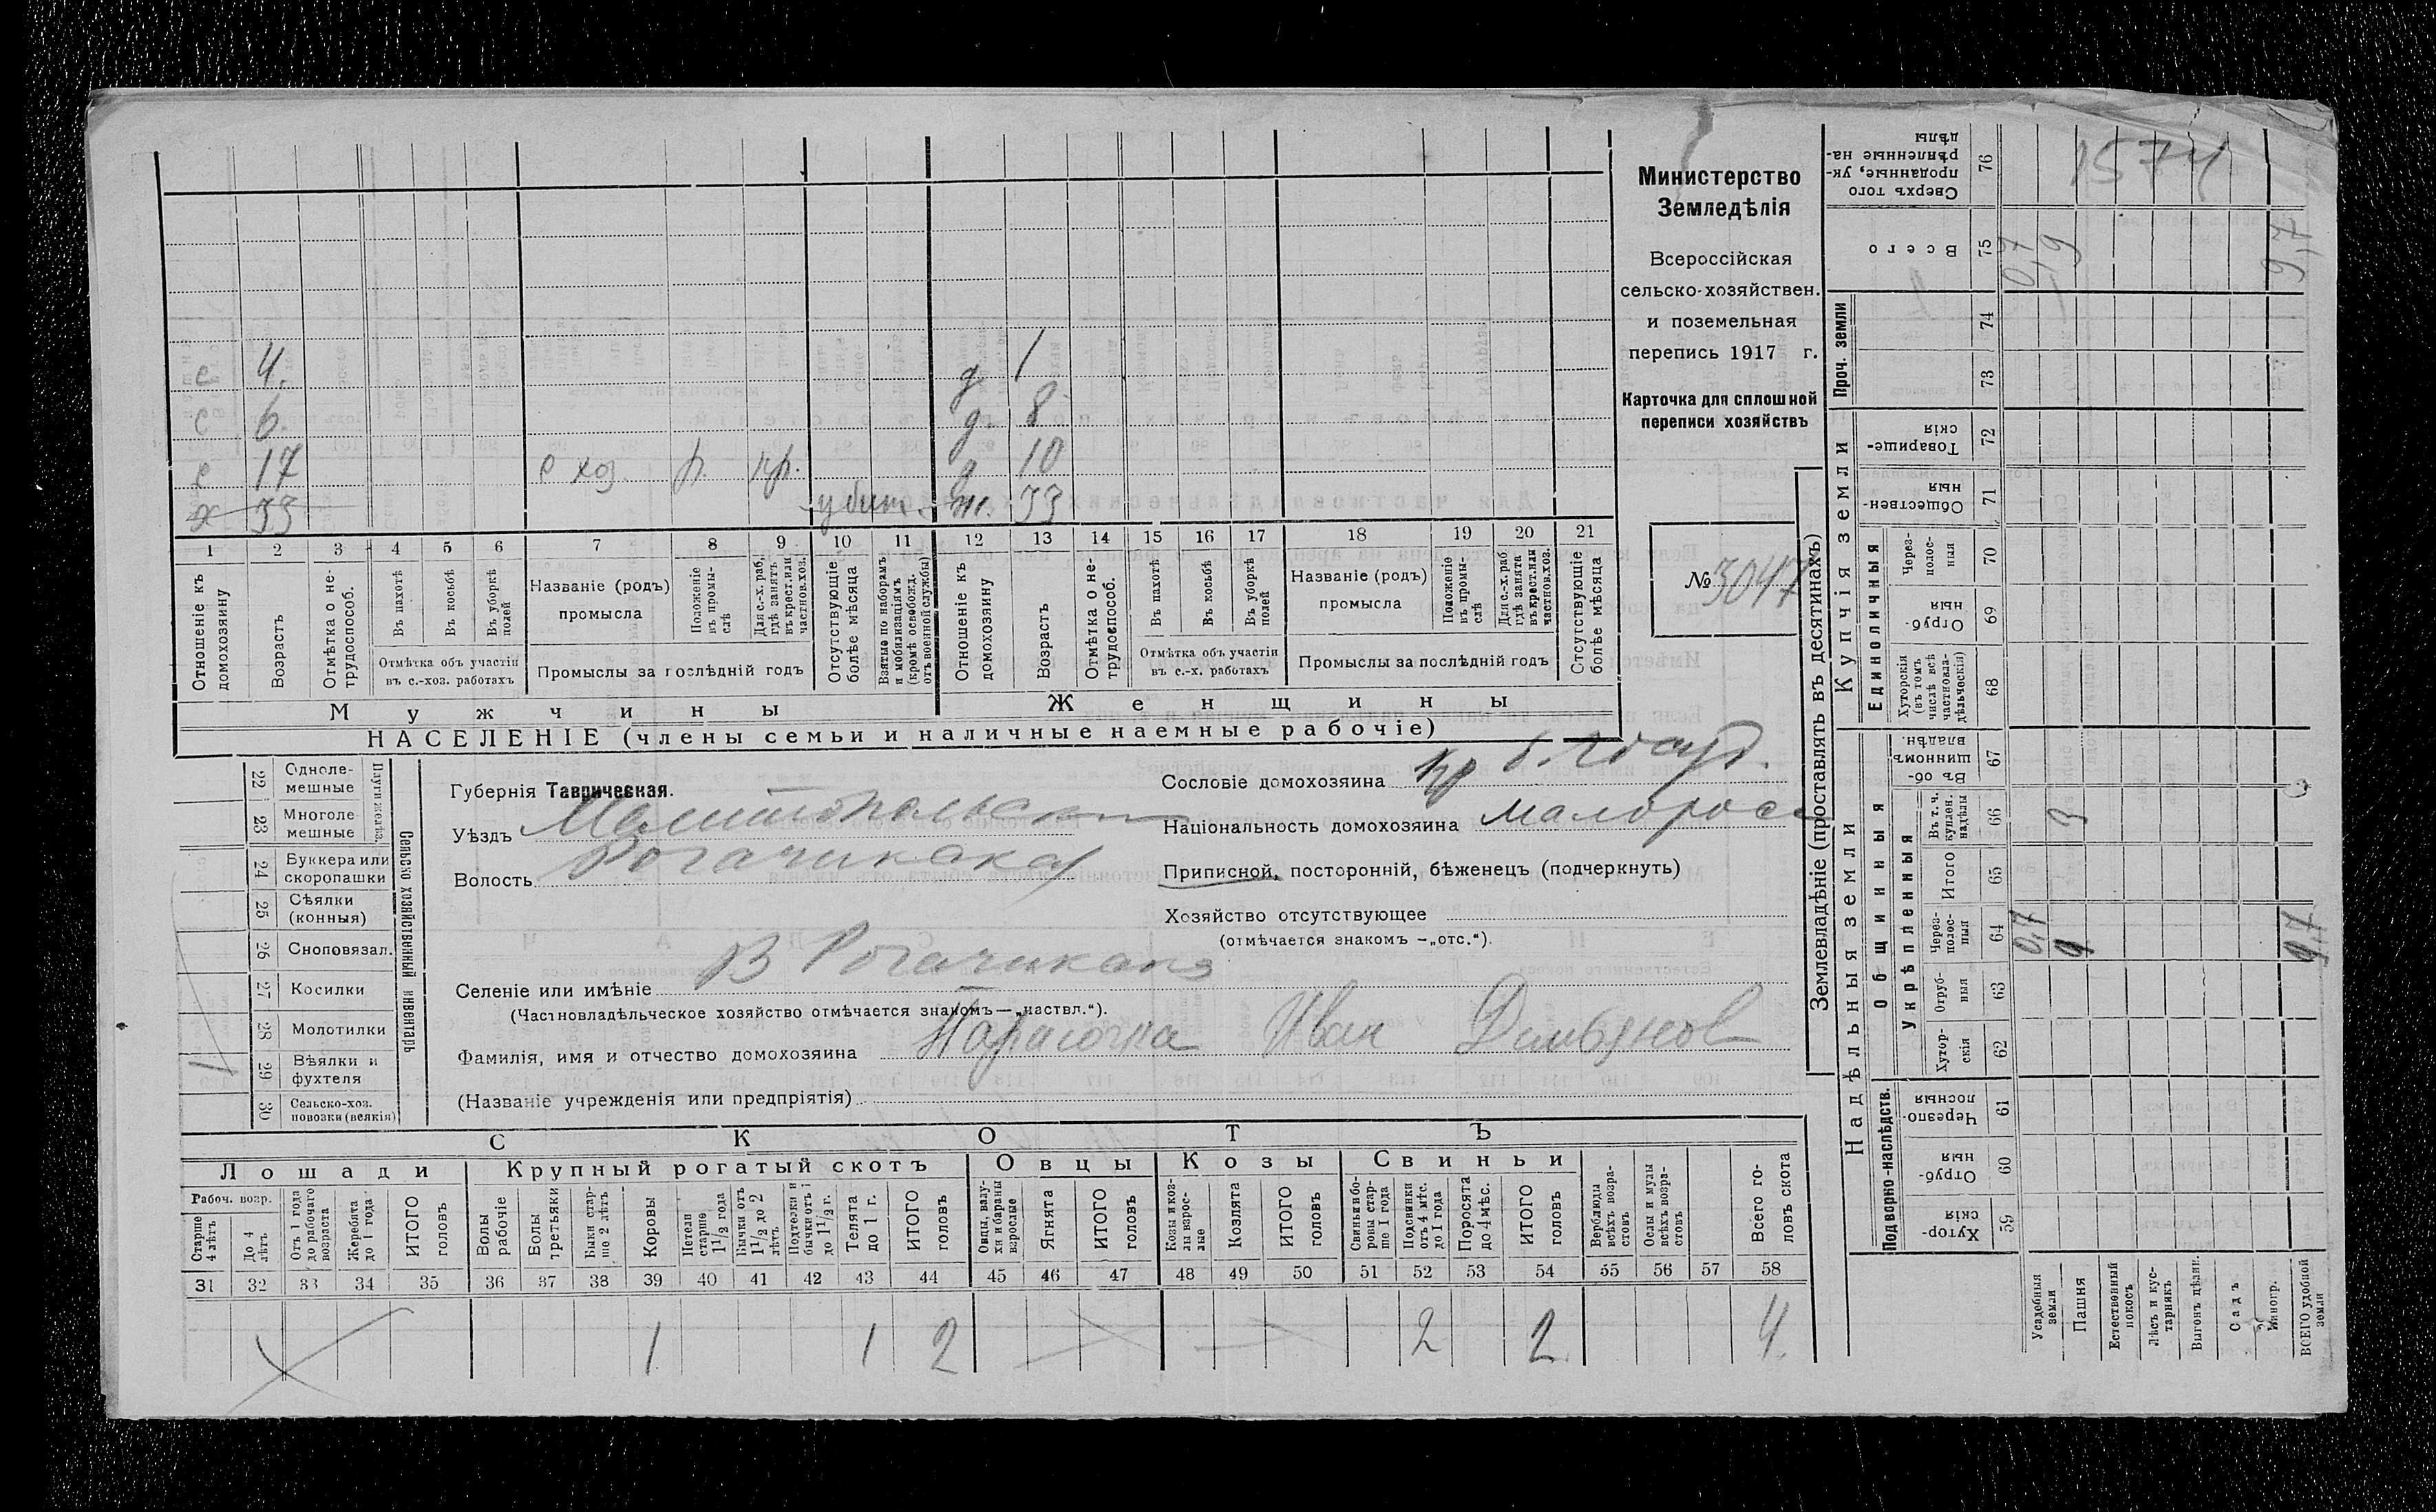 Министерство
Земледѣлія
Всероссійская
сельско-хозяйствен.
и поземельная
перепись 1917 г.
Карточка для сплошной
переписи хозяйствъ
№ 3047
с 4. д 1
с 6. д. 8
с 17 с хоз. р. кр. д 10
х 33 убит. ж. 33
1 2 3 4 5 6 7 8 9 10 11 12 13 14 15 16 17 18 19 20 21
Отношеніе къ домохозяину
Возрастъ
Отмѣтка о не-трудоспособ.
Въ пахотѣ
Въ косьбѣ
Въ уборкѣ полей
Отмѣтка объ участіи въ с.-хоз. работахъ
Названіе (родъ) промысла
Положеніе въ промы-слѣ
Для с.-х. раб. гдѣ занятъ въ крест. или частнов. хоз.
Промыслы за послѣдній годъ
Отсутствующіе болѣе мѣсяца
Взятые по наборамъ и мобилизаціямъ (кромѣ освобожд. отъ военной службы)
Отношеніе къ домохозяину
Возрастъ
Отмѣтка о не-трудоспособ.
Въ пахотѣ
Въ косьбѣ
Въ уборкѣ полей
Отмѣтка объ участіи въ с.-х. работахъ
Названіе (родъ) промысла
Положеніе въ промы-слѣ
Для с.-х. раб. гдѣ занята въ крест. или частнов. хоз.
Промыслы за послѣдній годъ
Отсутствующіе болѣе мѣсяца
Мужчины Женщины
НАСЕЛЕНІЕ (члены семьи и наличные наемные рабочіе)
22 Одноле-мешные
23 Многоле-мешные
24 Буккера или скоропашки
25 Сѣялки (конныя)
26 Сноповязал.
27 Косилки
28 Молотилки
29 Вѣялки и фухтеля 1
30 Сельско-хоз. повозки (всякія)
Плуги желѣз.
Сельско хозяйственный инвентарь
Губернія Таврическая.
Уѣздъ Мелитопольск
Волость Рогачикская
Селеніе или имѣніе В Рогачик
(Частновладѣльческое хозяйство отмѣчается знакомъ — „частвл.“).
Фамилія, имя и отчество домохозяина Парасочка Иван Демьянов
(Названіе учрежденія или предпріятія)
Сословіе домохозяина кр б. госуд.
Національность домохозяина малоросс
Приписной, посторонній, бѣженецъ (подчеркнуть)
Хозяйство отсутствующее
(отмѣчается знакомъ — „отс.“).
СКОТЪ
Лошади Крупный рогатый скотъ Овцы Козы Свиньи
Рабоч. возр.
Старше 4 лѣтъ
До 4 лѣтъ
Отъ 1 года до рабочаго возраста
Жеребята до 1 года
ИТОГО головъ
Волы рабочіе
Волы третьяки
Быки стар-ше 2 лѣтъ
Коровы
Нетели старше 1 1/2 года
Бычки отъ 1 1/2 до 2 лѣтъ
Подтелки и бычки отъ 1 до 1 1/2 г.
Телята до 1 г.
ИТОГО головъ
Овцы, валу-хи и бараны взрослые
Ягнята
ИТОГО головъ
Козы и коз-лы взрос-лые
Козлята
ИТОГО головъ
Свиньи и бо-ровы стар-ше 1 года
Подсвинки отъ 4 мѣс. до 1 года
Поросята до 4 мѣс.
ИТОГО головъ
Верблюды всѣхъ возра-стовъ
Ослы и мулы всѣхъ возра-стовъ
Всего го-ловъ скота
31 32 33 34 35 36 37 38 39 40 41 42 43 44 45 46 47 48 49 50 51 52 53 54 55 56 57 58
1 1 2 2 2 4
Землевладѣніе (проставлять въ десятинахъ)
Купчія земли
Надѣльныя земли
Проч. земли
Единоличныя
Общинныя
Укрѣпленныя
Подворно-наслѣдств.
Сверхъ того проданные, ук-рѣпленные на-дѣлы 76
Всего 75
74
73
Товарище-скія 72
Обществен-ныя 71
Через-полос-ныя 70
Отруб-ныя 69
Хуторскія (въ томъ числѣ всѣ частновла-дѣльческія) 68
Въ об-щинномъ владѣн. 67
Въ т. ч. куплен. надѣлы 66
Итого 65
Через-полос-ныя 64
Отруб-ныя 63
Хутор-скія 62
Черезпо-лосныя 61
Отруб-ныя 60
Хутор-скія 59
Усадебныя земли
Пашня
Естественный покосъ
Лѣсъ и кус-тарникъ
Выгонъ цѣлин.
Садъ
Виногр.
ВСЕГО удобной земли
1574
0,7 9 9,7
0,7 9 9,7